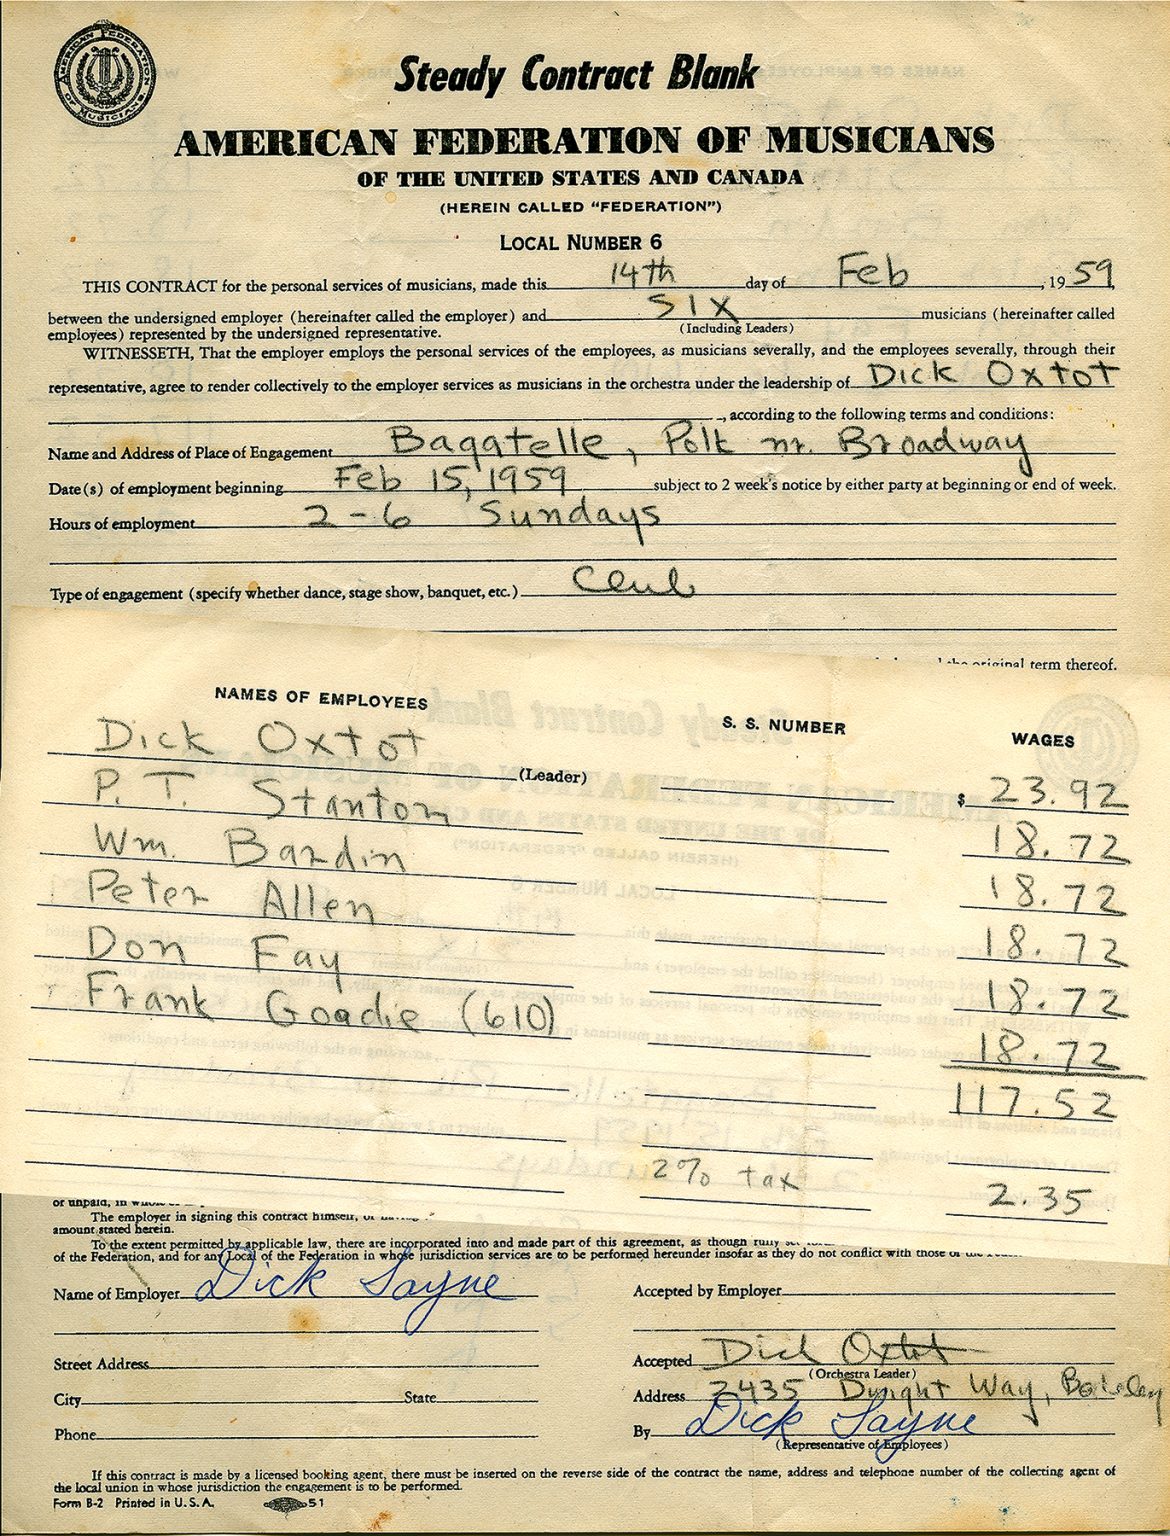 AMERICAN FEDERATION OF MUSICIANS
Steady Contract Blank
AMERICAN FEDERATION OF MUSICIANS
OF THE UNITED STATES AND CANADA
(HEREIN CALLED "FEDERATION")
LOCAL NUMBER 6
THIS CONTRACT for the personal services of musicians, made this 14th day of Feb, 1959
between the undersigned employer (hereinafter called the employer) and SIX musicians (hereinafter called
(Including Leaders)
employees) represented by the undersigned representative.
WITNESSETH, That the employer employs the personal services of the employees, as musicians severally, and the employees severally, through their
representative, agree to render collectively to the employer services as musicians in the orchestra under the leadership of Dick Oxtot
, according to the following terms and conditions:
Name and Address of Place of Engagement Bagatelle, Polk nr. Broadway
Date(s) of employment beginning Feb 15, 1959 subject to 2 week's notice by either party at beginning or end of week.
Hours of employment 2-6 Sundays
Type of engagement (specify whether dance, stage show, banquet, etc.) Club
the original term thereof.
NAMES OF EMPLOYEES S. S. NUMBER WAGES
Dick Oxtot (Leader) $ 23.92
P. T. Stanton 18.72
Wm. Bardin 18.72
Peter Allen 18.72
Don Fay 18.72
Frank Goadie (610) 18.72
117.52
2% tax 2.35
or unpaid, in whole or
The employer in signing this contract himself, or having
amount stated herein.
To the extent permitted by applicable law, there are incorporated into and made part of this agreement, as though fully set
of the Federation, and for any Local of the Federation in whose jurisdiction services are to be performed hereunder insofar as they do not conflict with those of the
Name of Employer Dick Sayne Accepted by Employer
Street Address Accepted Dick Oxtot
(Orchestra Leader)
City State Address 2435 Dwight Way, Berkeley
Phone By Dick Sayne
(Representative of Employees)
If this contract is made by a licensed booking agent, there must be inserted on the reverse side of the contract the name, address and telephone number of the collecting agent of
the local union in whose jurisdiction the engagement is to be performed.
Form B-2 Printed in U. S. A. 51